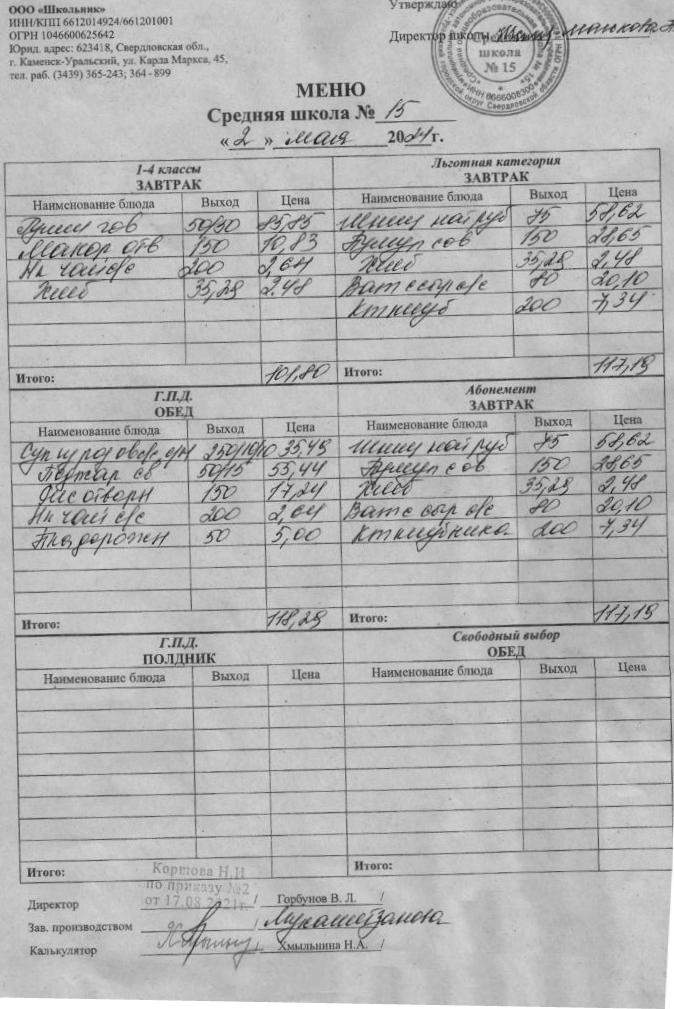 ООО «Школьник»
ИНН/КПП 6612014924/661201001
ОГРН 1046600625642
Юрид. адрес: 623418, Свердловская обл.,
г. Каменск-Уральский, ул. Карла Маркса, 45,
тел. раб. (3439) 365-243; 364 - 899
Утверждаю
Директор школы
школа
№ 15
МЕНЮ
Средняя школа № 15
« 2 » мая 2024г.
1-4 классы
ЗАВТРАК
Наименование блюда Выход Цена
гов 50/50 85,85
Макар отв 150 10,83
Нп чай с/с 200 2,64
Хлеб 35,29 2.48
Итого: 101,80
Льготная категория
ЗАВТРАК
Наименование блюда Выход Цена
Шниц нат руб 75 58,62
150 28,65
Хлеб 35,29 2,48
80 20,10
200 7,34
Итого: 117,19
Г.П.Д.
ОБЕД
Наименование блюда Выход Цена
Суп 250/10/10 35.49
Поджар св 50/75 55,44
Рис отварн 150 17,24
Нп чай с/с 200 2,64
дорожн 50 5,00
Итого: 118,29
Абонемент
ЗАВТРАК
Наименование блюда Выход Цена
Шниц нат руб 75 58,62
150 28,65
Хлеб 35,29 2,48
80 20,10
200 7,34
Итого: 117,19
Г.П.Д.
ПОЛДНИК
Наименование блюда Выход Цена
Итого:
Свободный выбор
ОБЕД
Наименование блюда Выход Цена
Итого:
Коршова Н.И
по приказу №2
от 17.08.2021г.
Директор / Горбунов В. Л. /
Зав. производством /
Калькулятор / Хмыльнина Н.А. /